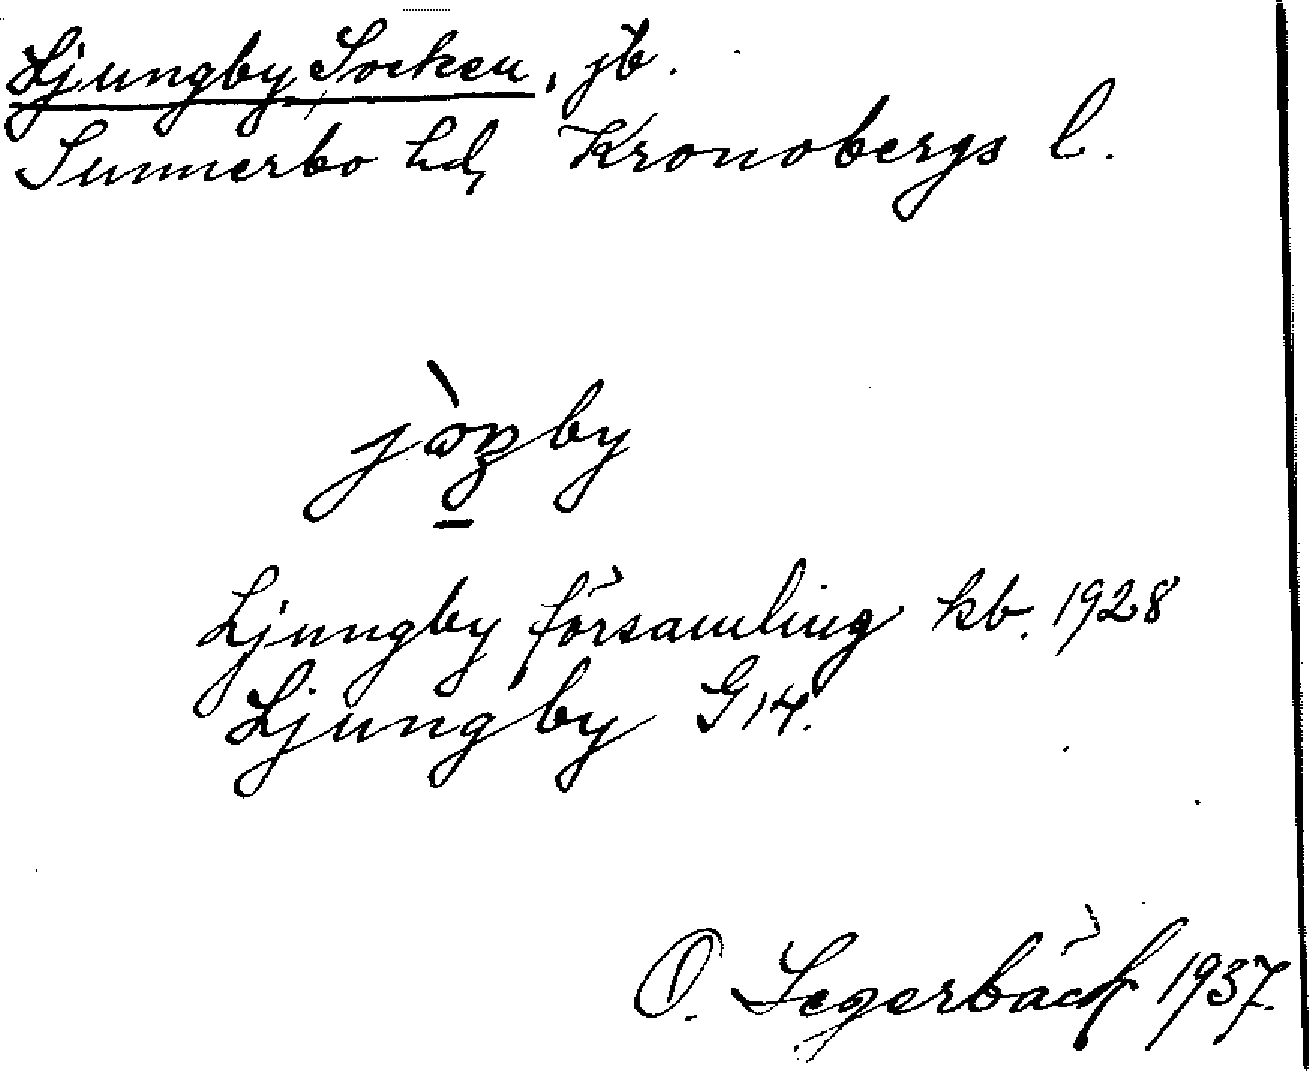 Ljungby Socken, jb.
Sunnerbo hd, Kronobergs l.
Ljungby församling kb. 1928
Ljungby G14.
O. Segerbäck 1937.